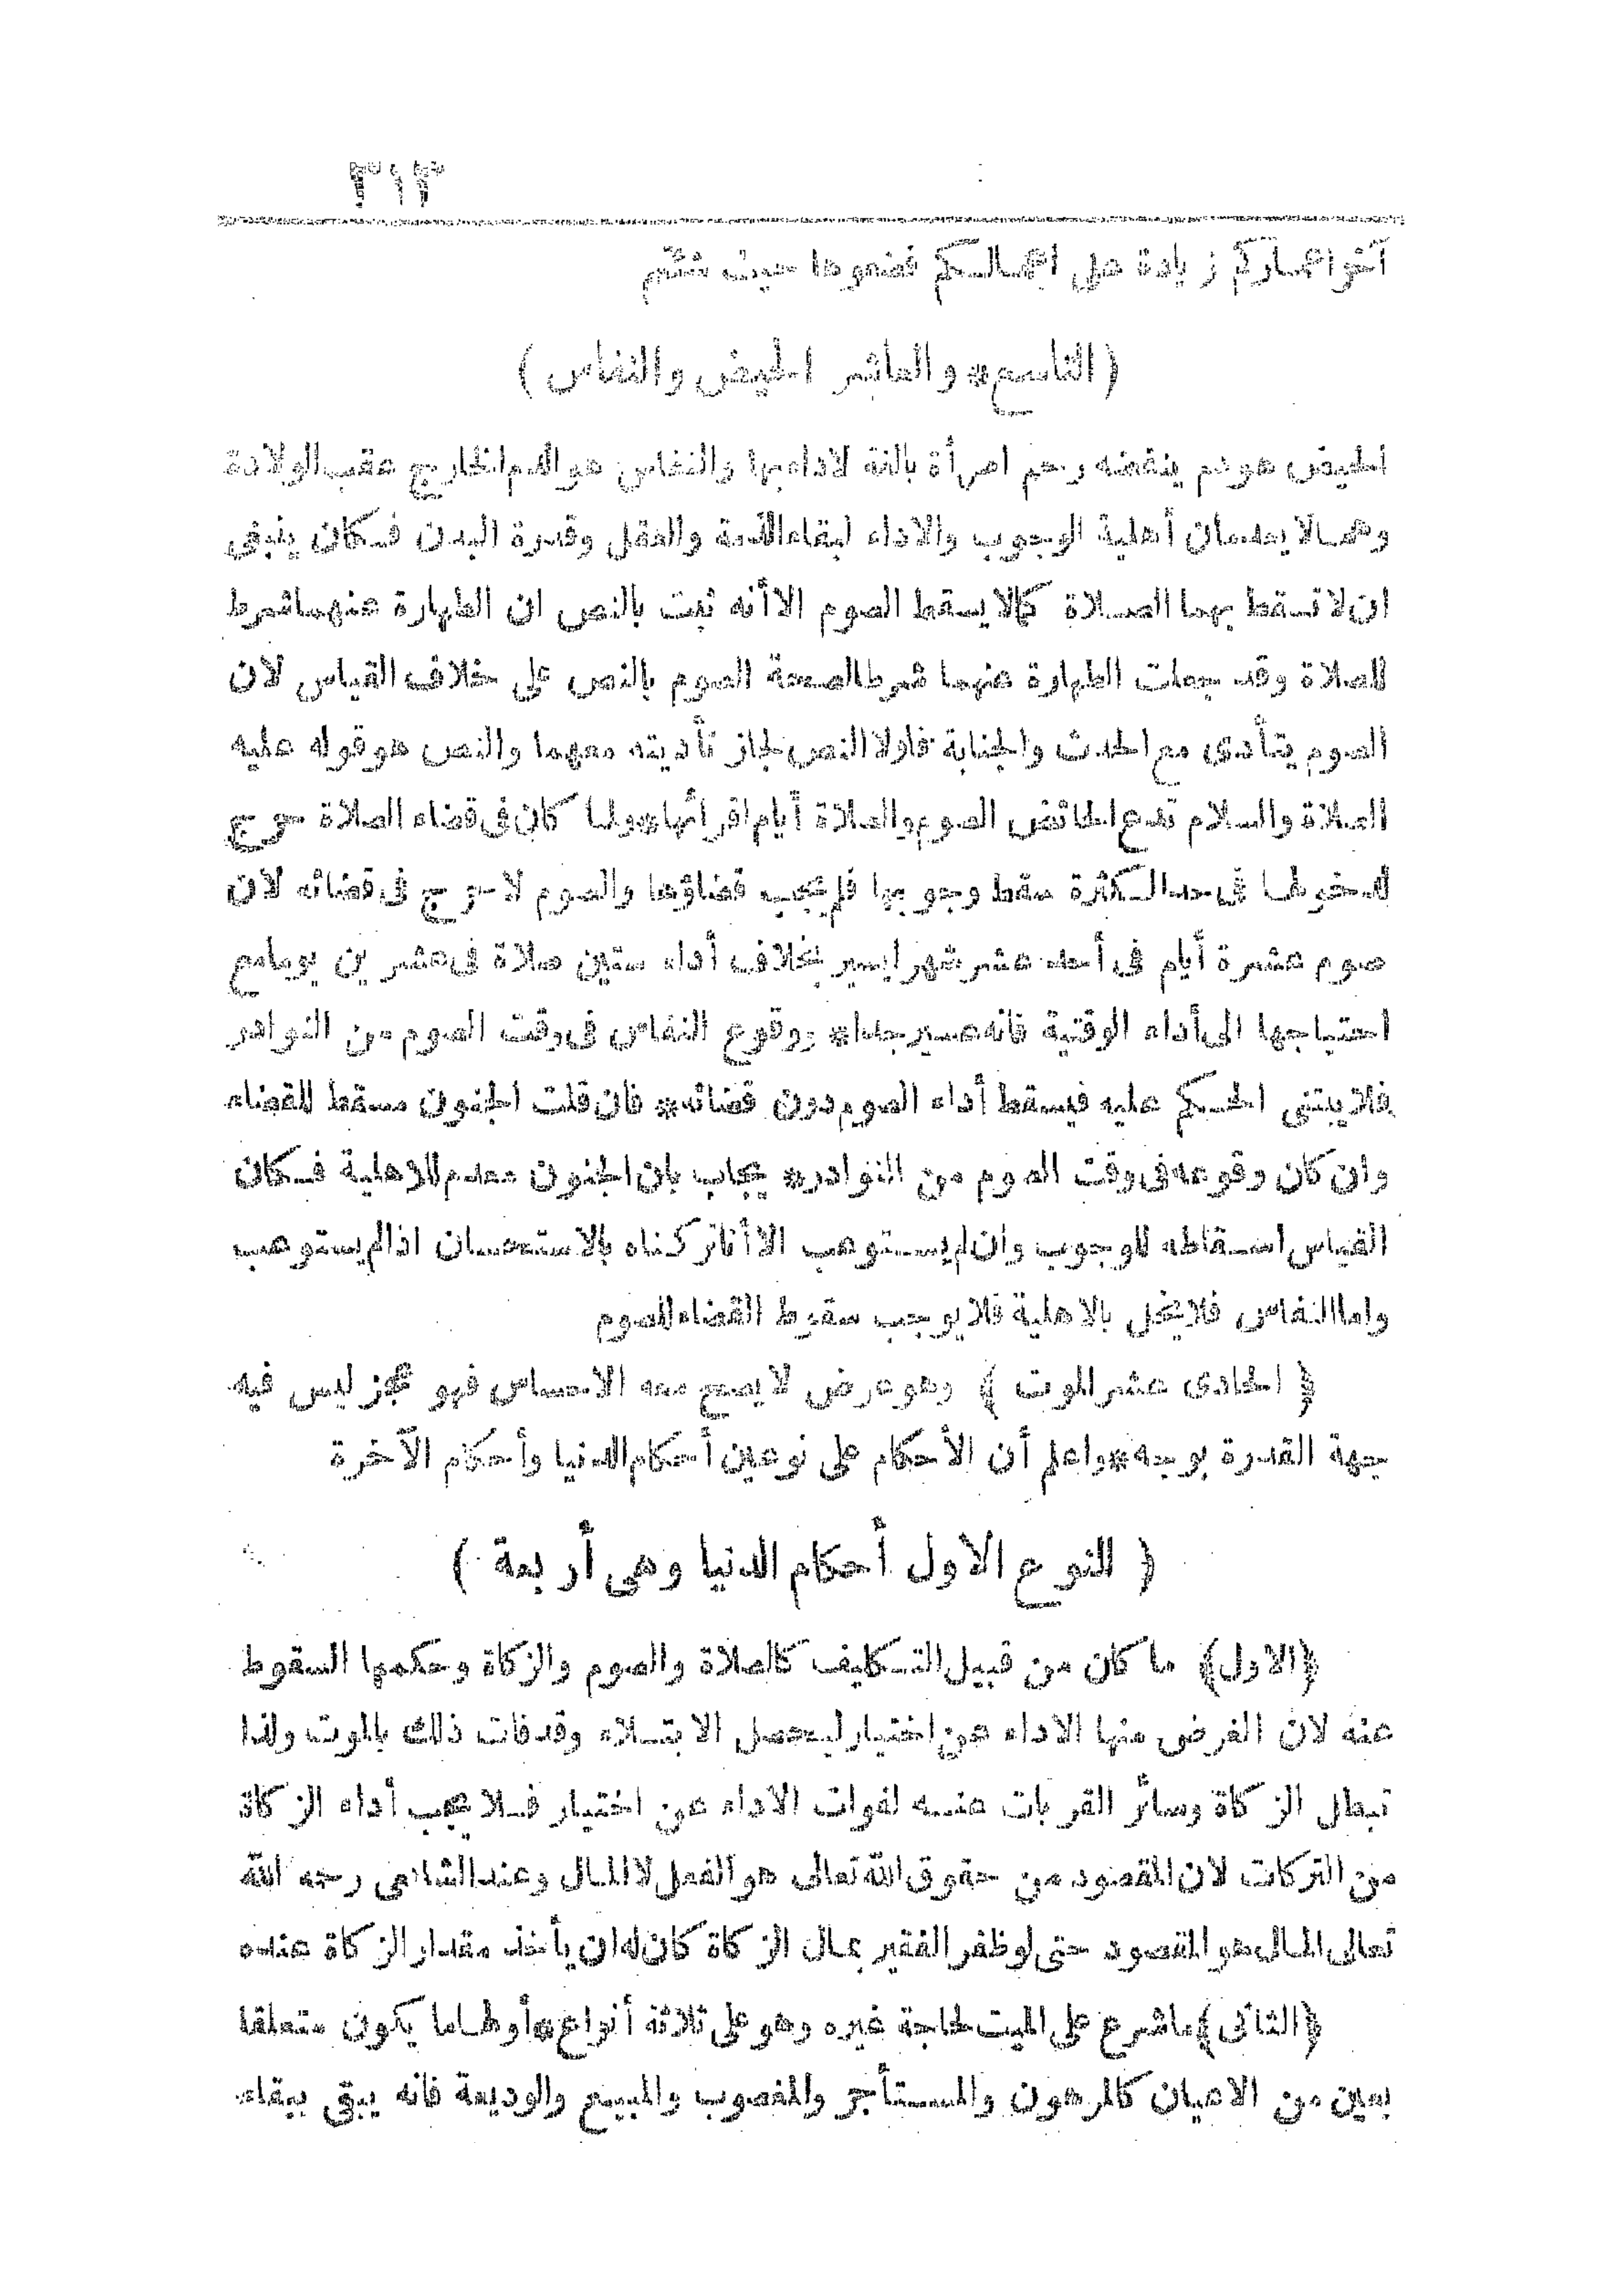 ٣١٣
آخر اعماركم زيادة على اعمالكم فضعوها حيث شئتم
( التاسع* والعاشر الحيض والنفاس )
الحيض هو دم ينفضه رحم امرأة بالغة لاداء بها والنفاس هو الدم الخارج عقب الولادة
وهما لا يعدمان أهلية الوجوب والاداء لبقاء الذمة والعقل وقدرة البدن فكان ينبغى
ان لا تسقط بهما الصلاة كما لا يسقط الصوم الا أنه ثبت بالنص ان الطهارة عنهما شرط
للصلاة وقد جعلت الطهارة عنهما شرطا لصحة الصوم بالنص على خلاف القياس لان
الصوم يتأدى مع الحدث والجنابة فلولا النص لجاز تأديته معهما والنص هو قوله عليه
الصلاة والسلام تدع الحائض الصوم والصلاة أيام اقرائها* ولما كان فى قضاء الصلاة حرج
لدخولها فى حد الكثرة سقط وجوبها فلم يجب قضاؤها والصوم لا حرج فى قضائه لان
صوم عشرة أيام فى أحد عشر شهرا يسير بخلاف أداء ستين صلاة فى عشرين يوما مع
احتياجها الى أداء الوقتية فانه عسير جدا* ووقوع النفاس فى وقت الصوم من النوادر
فلا يبتنى الحكم عليه فيسقط أداء الصوم دون قضائه* فان قلت الجنون مسقط للقضاء
وان كان وقوعه فى وقت الصوم من النوادر* يجاب بان الجنون معدم للاهلية فكان
القياس اسقاطه للوجوب وان لم يستوعب الا أنا تركناه بالاستحسان اذا لم يستوعب
واما النفاس فلا يخل بالاهلية فلا يوجب سقوط القضاء للصوم
﴿ الحادى عشر الموت ﴾ وهو عرض لا يصح معه الاحساس فهو عجز ليس فيه
جهة القدرة بوجه* واعلم أن الأحكام على نوعين أحكام الدنيا وأحكام الآخرة
( النوع الاول أحكام الدنيا وهى أربعة )
﴿الاول﴾ ما كان من قبيل التكليف كالصلاة والصوم والزكاة وحكمها السقوط
عنه لان الغرض منها الاداء عن اختيار ليحصل الابتلاء وقد فات ذلك بالموت ولذا
تبطل الزكاة وسائر القربات عنه لفوات الاداء عن اختيار فلا يجب أداء الزكاة
من التركات لان المقصود من حقوق الله تعالى هو الفعل لا المال وعند الشافعى رحمه الله
تعالى المال هو المقصود حتى لو ظفر الفقير بمال الزكاة كان له ان يأخذ مقدار الزكاة عنده
﴿الثانى﴾ ما شرع على الميت لحاجة غيره وهو على ثلاثة أنواع* أولها ما يكون متعلقا
بعين من الاعيان كالمرهون والمستأجر والمغصوب والمبيع والوديعة فانه يبقى ببقاء